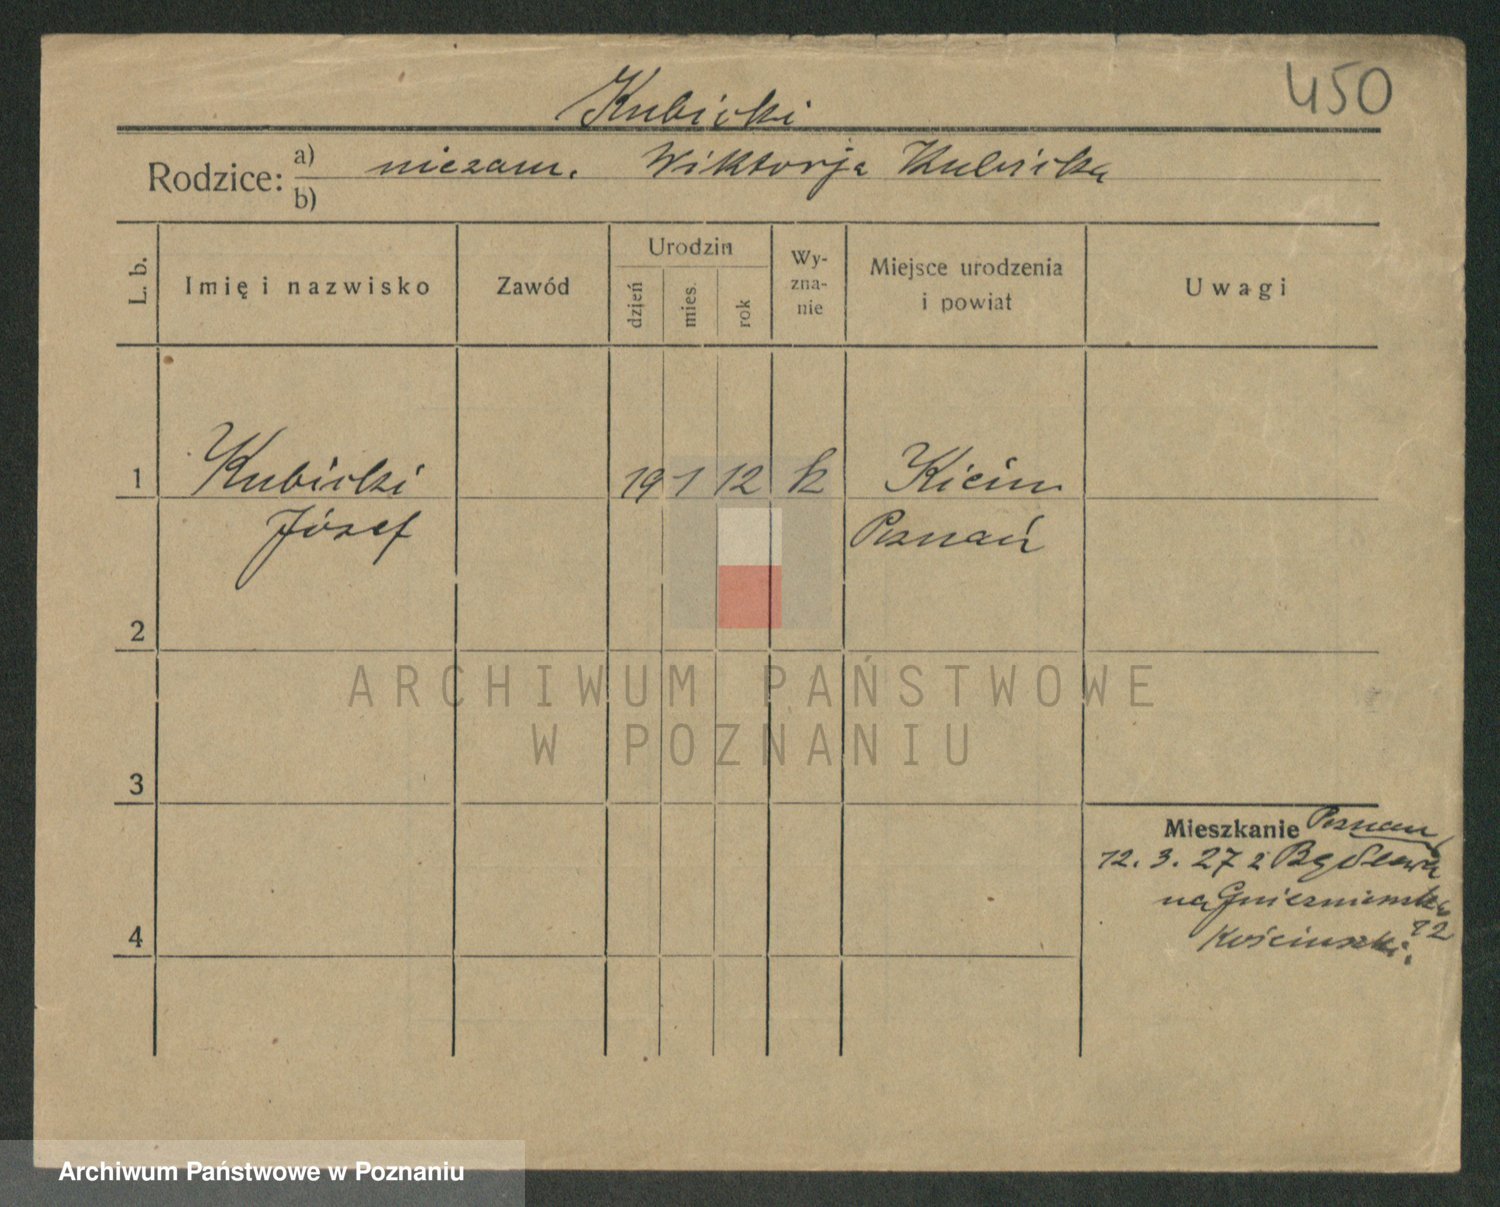 450
Kubicki
Rodzice: a) niezam. Wiktorja Kubicka
b)
L. b. Imię i nazwisko Zawód Urodzin dzień mies. rok Wy-zna-nie Miejsce urodzenia i powiat Uwagi
1 Kubicki 19 1 12 k Kicin
Józef Poznań
2
ARCHIWUM PAŃSTWOWE
W POZNANIU
3
Mieszkanie Poznań
12. 3. 27 z
na Gnieźnieńska
12
Kościuszki.
4
Archiwum Państwowe w Poznaniu